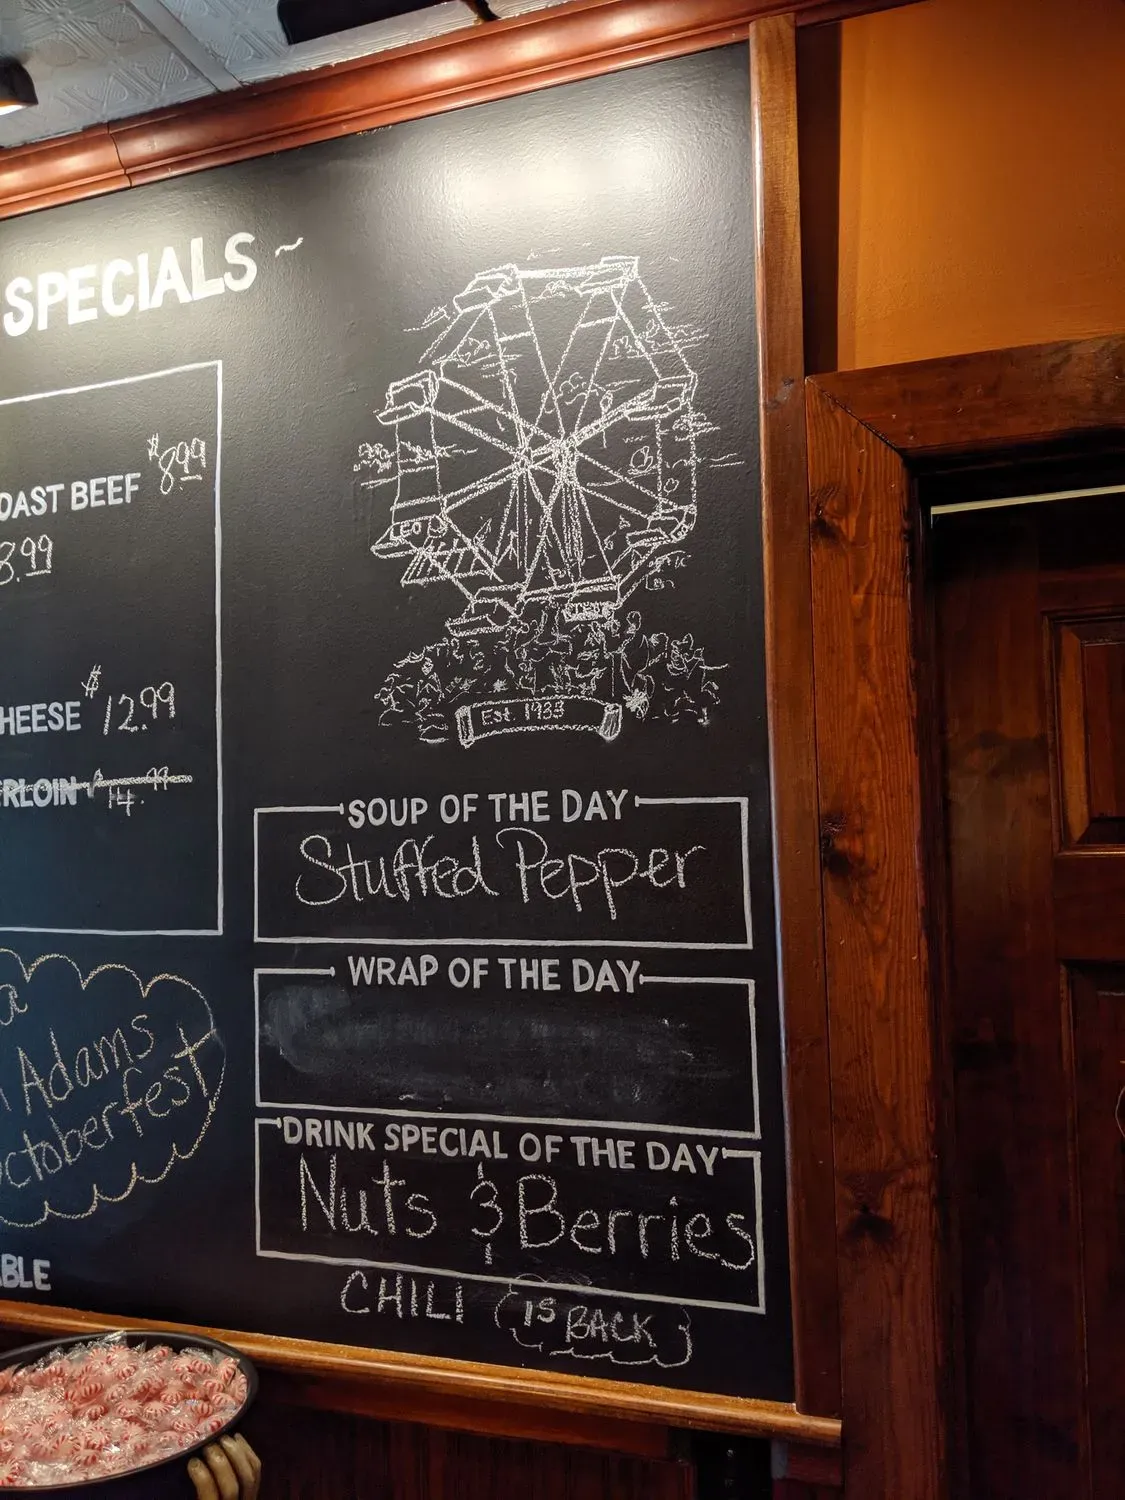 SPECIALS ~
OAST BEEF $8.99
8.99
HEESE $12.99
ERLOIN 14.99
Est. 1933
SOUP OF THE DAY
Stuffed Pepper
WRAP OF THE DAY
DRINK SPECIAL OF THE DAY
Nuts & Berries
CHILI IS BACK
a
Adams
ctoberfest
BLE